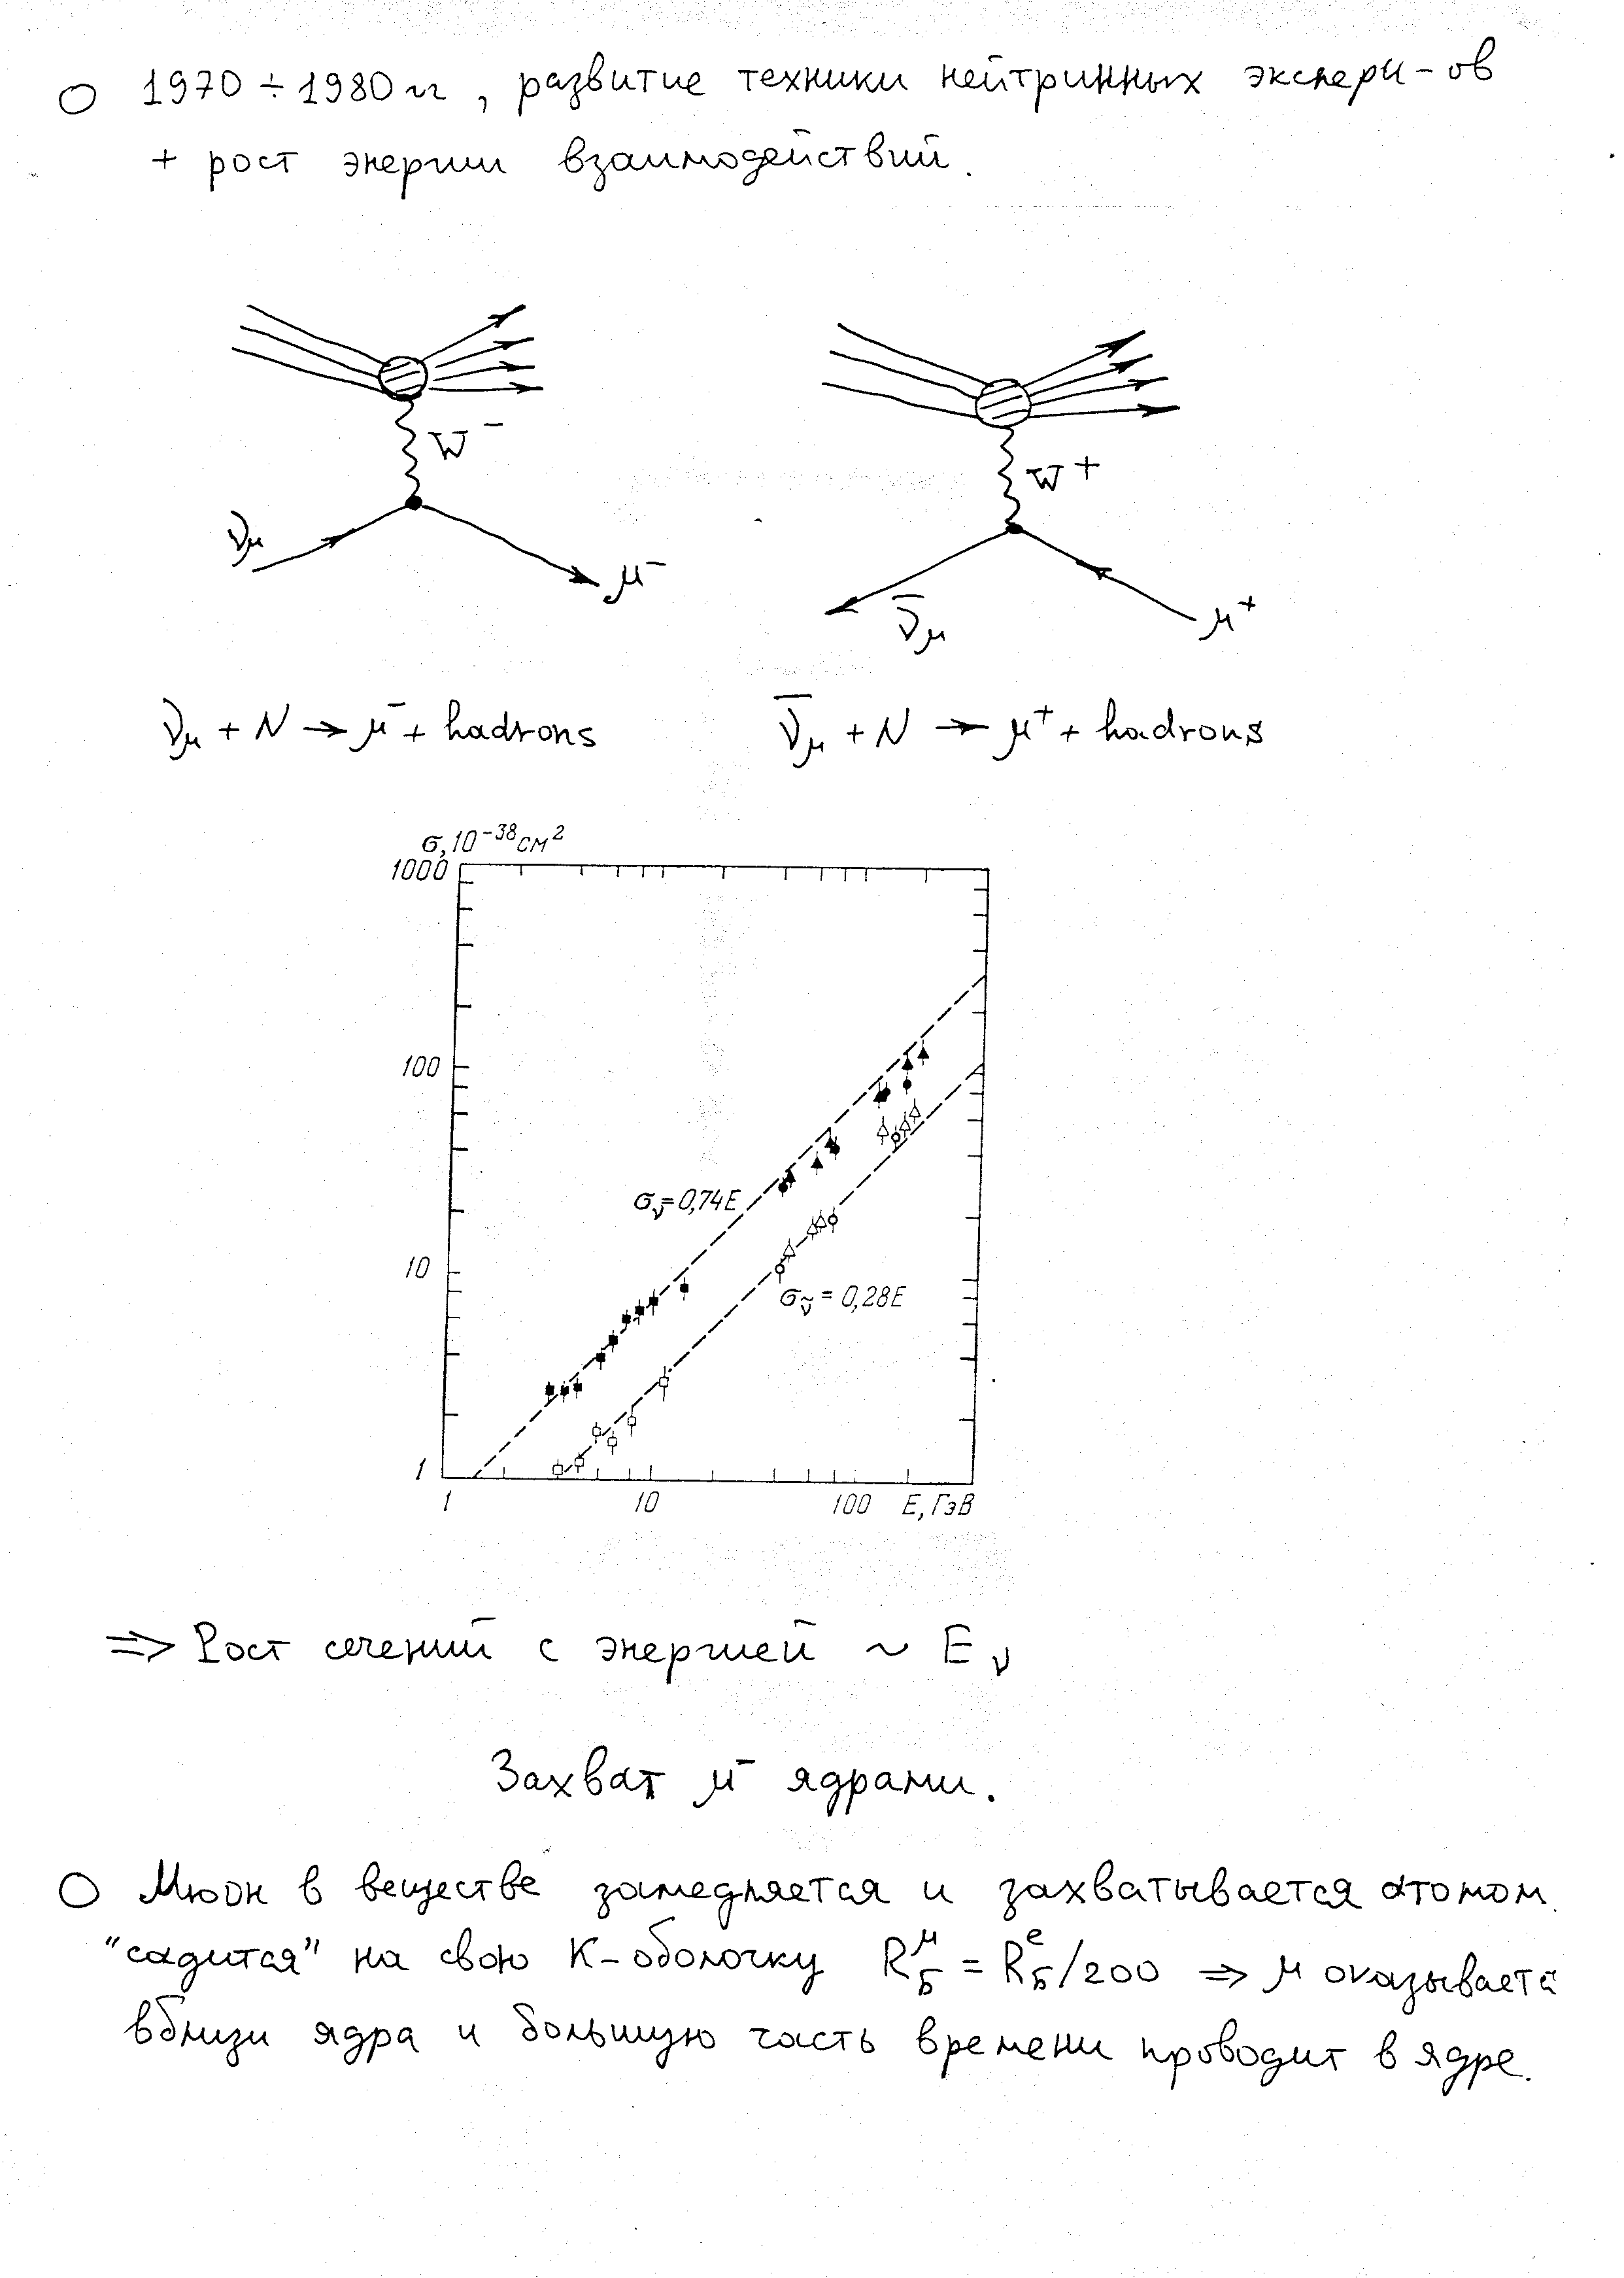 1970 ÷ 1980 гг, развитие техники нейтринных экспери-ов
+ рост энергии взаимодействий.
W⁻
W⁺
ν_μ
μ⁻
ν̄_μ
μ⁺
ν_μ + N → μ⁻ + hadrons
ν̄_μ + N → μ⁺ + hadrons
σ, 10⁻³⁸ см²
1000
100
σ_ν = 0,74E
10
σ_ν̃ = 0,28E
1
1
10
100
E, ГэВ
⇒ Рост сечений с энергией ~ E_ν
Захват μ⁻ ядрами.
Мюон в веществе замедляется и захватывается атомом.
"садится" на свою К-оболочку R_Б^μ = R_Б^e/200 ⇒ μ оказывается
вблизи ядра и большую часть времени проводит в ядре.